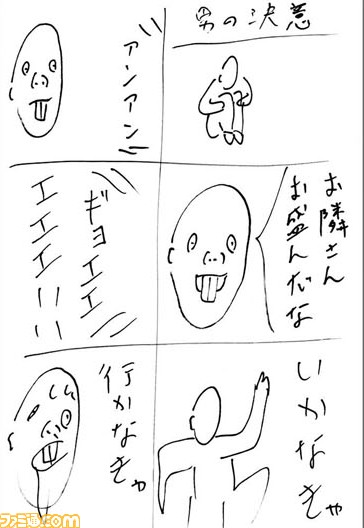 男の決意
アンアン
お隣さん
お盛んだな
ギョエエ
エエエエ!!
いかなきゃ
行かなきゃ
ファミ通.com